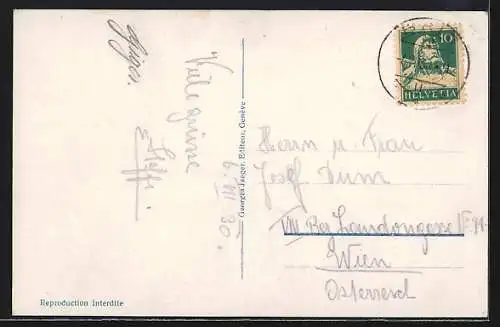 Viele grüsse
Steffi.
6. VII 30.
Georges Jaeger, Editeur, Genève
10
HELVETIA
Herrn u. Frau
Josef Dum
VIII Bez
Wien
Österreich
Reproduction Interdite